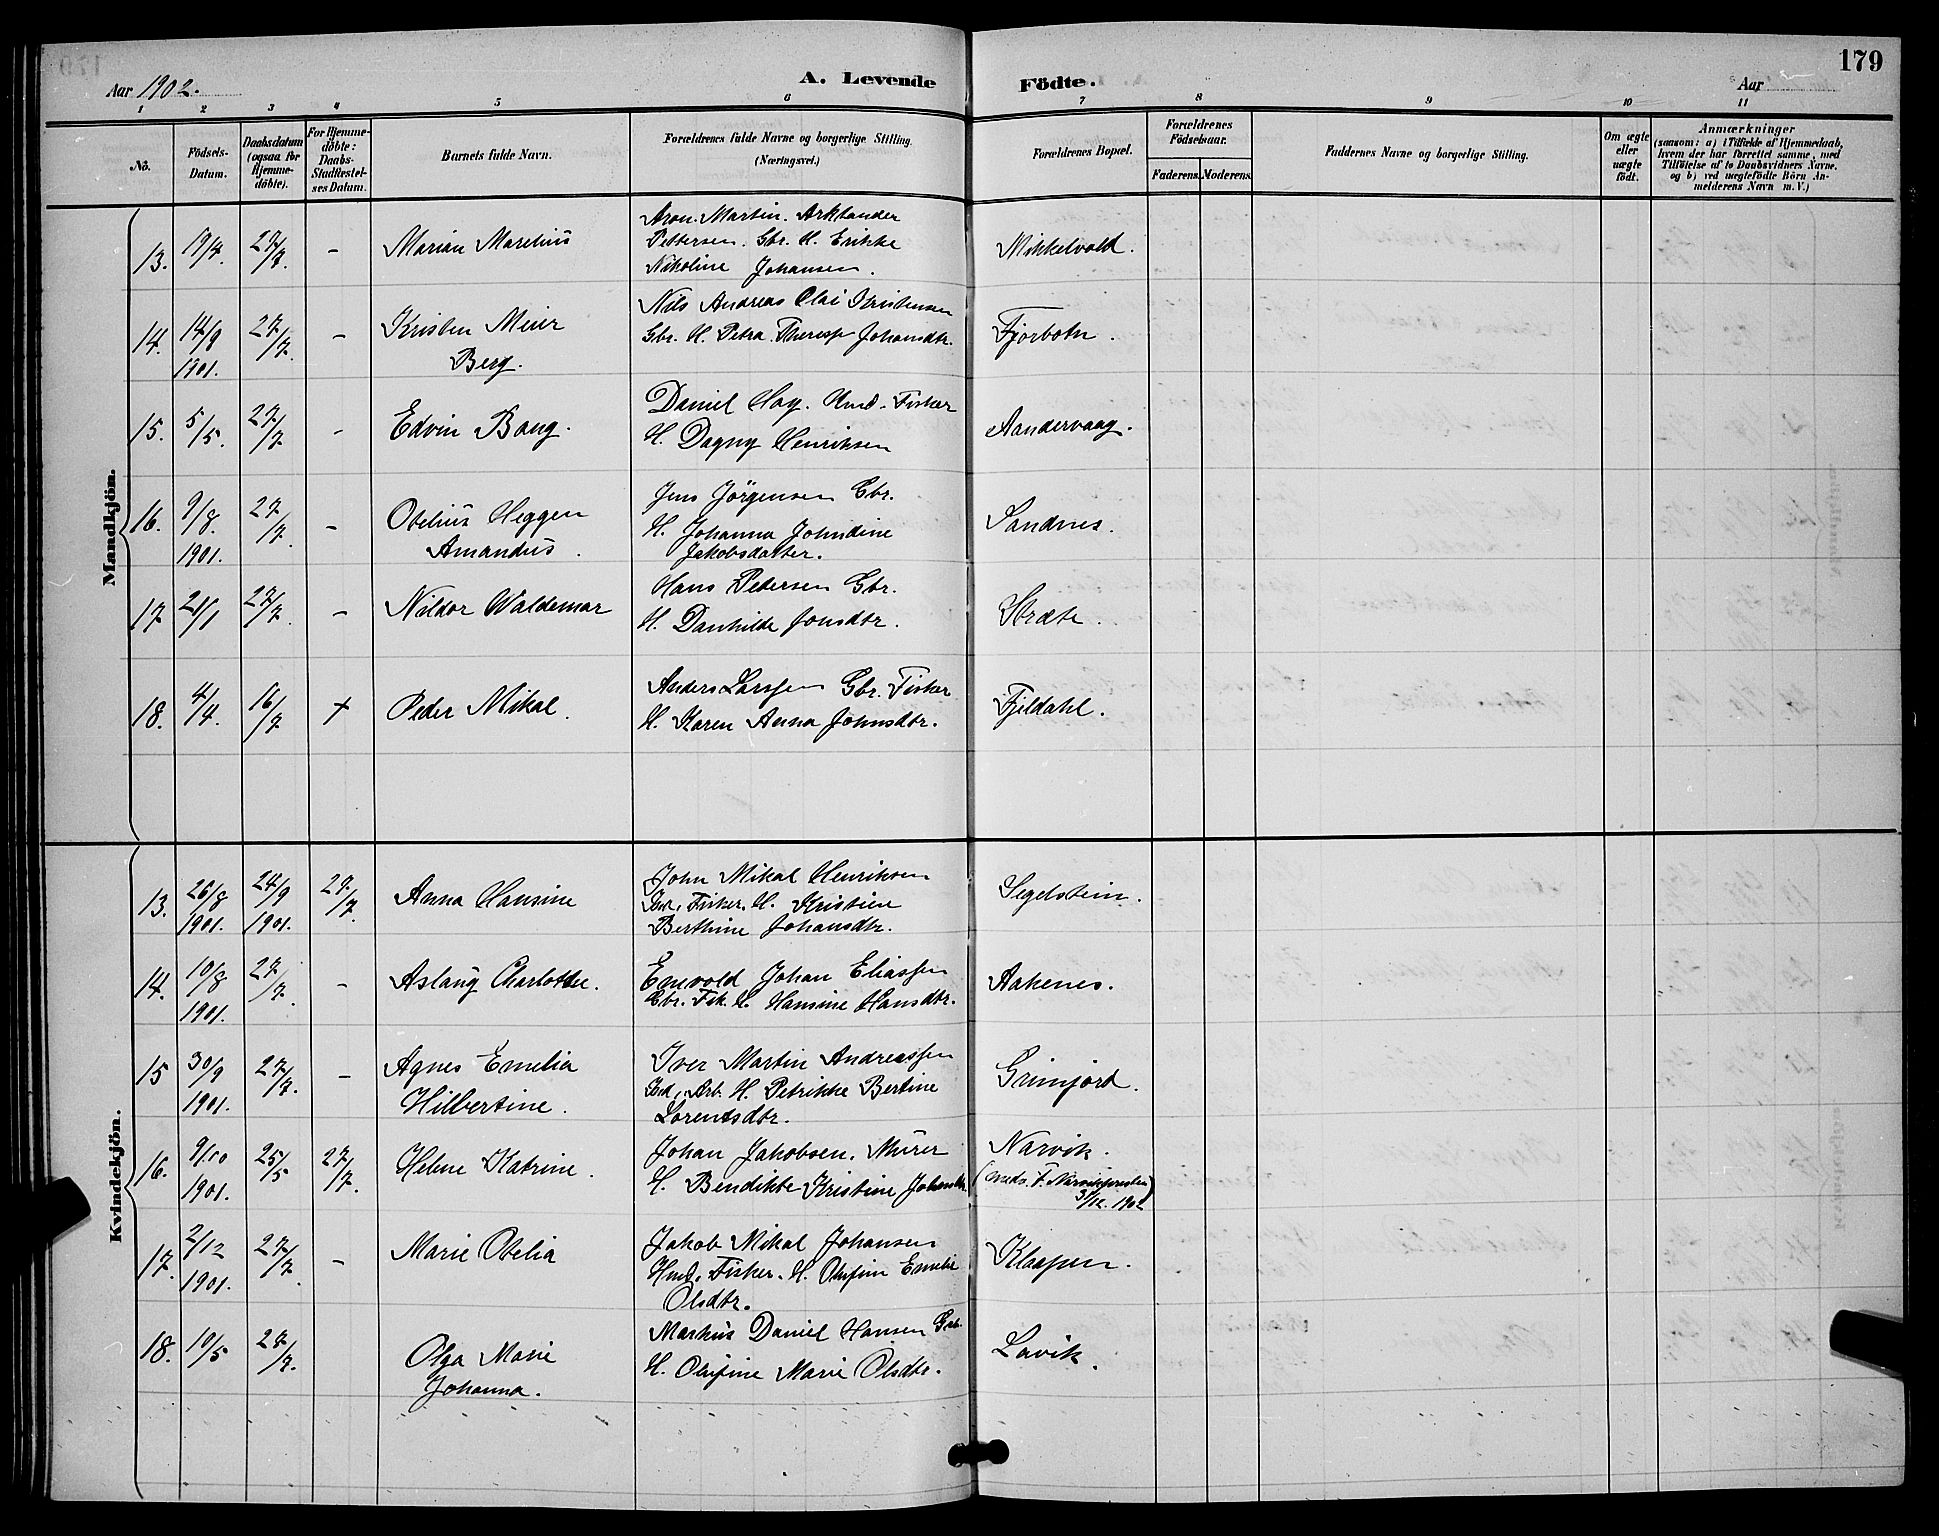 179
Aar 1902.
A. Levende Födte.
Aar
1 2 3 4 5 6 7 8 9 10 11
No.
Födsels-Datum.
Daabsdatum (ogsaa for Hjemmedöbte).
For Hjemmedöbte: Daabs-Stadfæstelses Datum.
Barnets fulde Navn.
Forældrenes fulde Navne og borgerlige Stilling. (Næringsvei.)
Forældrenes Bopæl.
Forældrenes Födselsaar.
Faderens. Moderens.
Faddernes Navne og borgerlige Stilling.
Om ægte eller uægte födt.
Anmærkninger
(saasom: a) i Tilfælde af Hjemmedaab, hvem der har forrettet samme, med Tilföielse af to Daabsvidners Navne, og b) ved uægtefödte Börn Anmelderens Navn m.V.)
Mandkjön.
13. 19/4. 27/7. - Marian Marelius
Aron Martin Arktander
Pettersen. Gbr. H. Erikke
Nikoline Johansen.
Mikkelvold.
14. 14/9 1901. 27/7. - Kristen Meier
Berg.
Nils Andreas Olai Kristensen
Gbr. H. Petra Therese Johansdtr.
Fjorbotn.
15. 5/5. 27/7 - Edvin Bang.
Daniel Hag. Fisker
H. Dagny Henriksen
Aandervaag.
16. 9/8. 1901. 27/7. - Otelius Heggen
Amandus.
Jens Jörgensen Gbr.
H. Johanna Johndine
Jakobsdatter.
Sandnes.
17 21/1 27/7. - Nildor Waldemar
Hans Pedersen Gbr.
H. Danhilde Jonsdtr.
Stræte.
18. 4/4. 16/7. + Peder Mikal.
Anders Larssen Gbr. Fisker
H. Karen Anna Johnsdtr.
Fjeldahl.
Kvindekjön.
13. 26/8 1901. 24/9 1901. 27/7. Anna Hansine
John Mikal Henriksen
Ind. Fisker. H. Kristine
Berthine Johansdtr.
Segelstein.
14. 10/8 1901. 27/7. - Aslaug Charlotte.
Envold Johan Eliassen
Gbr. Fisk. H. Hansine Hansdtr.
Aakenes.
15 30/9 1901. 27/7. - Agnes Emelia
Hilbertine.
Iver Martin Andreassen
Ind. Arb. H. Petrikke Bertine
Lorentsdtr.
Grimjord.
16. 9/10 1901. 25/5 27/7. Helene Katrine.
Johan Jakobsen. Murer
H. Bendikte Kristine Johansdtr.
Narvik.
31/12. 1902
17. 2/12 1901. 27/7 - Marie Otelia
Jakob Mikal Johansen
Hmd. Fisker. H. Olufine Emelie
Olsdtr.
Klaapen.
18. 10/5 27/7. Olga Marie
Johanna.
Markus Daniel Hansen Gbr.
H. Olufine Marie Olsdtr.
Lavik.